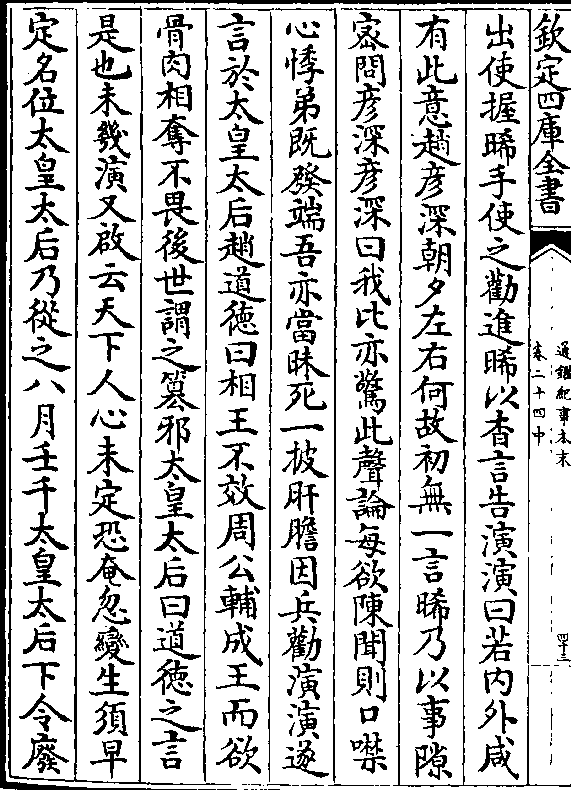 欽定四庫全書
通鑑紀事本末
卷二十四中
四十三
出使握晞手使之勸進晞以杳言告演演曰若内外咸
有此意趙彦深朝夕左右何故初無一言晞乃以事隙
宻問彦深彦深曰我比亦驚此聲論每欲陳聞則口噤
心悸弟既發端吾亦當昧死一披肝膽因共勸演演遂
言於太皇太后趙道徳曰相王不效周公輔成王而欲
骨肉相奪不畏後世謂之簒邪太皇太后曰道徳之言
是也未幾演又啟云天下人心未定恐奄忽變生須早
定名位太皇太后乃從之八月壬午太皇太后下令廢